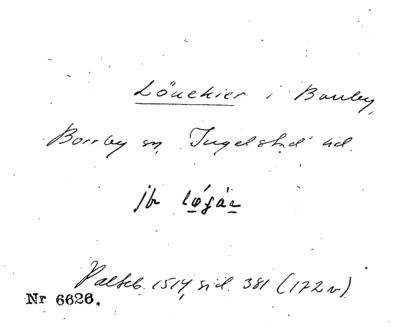 Lönekier i Borrby,
Borrby sn Ingelstad hd.
jb lǿgár
Paltsb. 1514, sid. 381 (172 v)
Nr 6626.